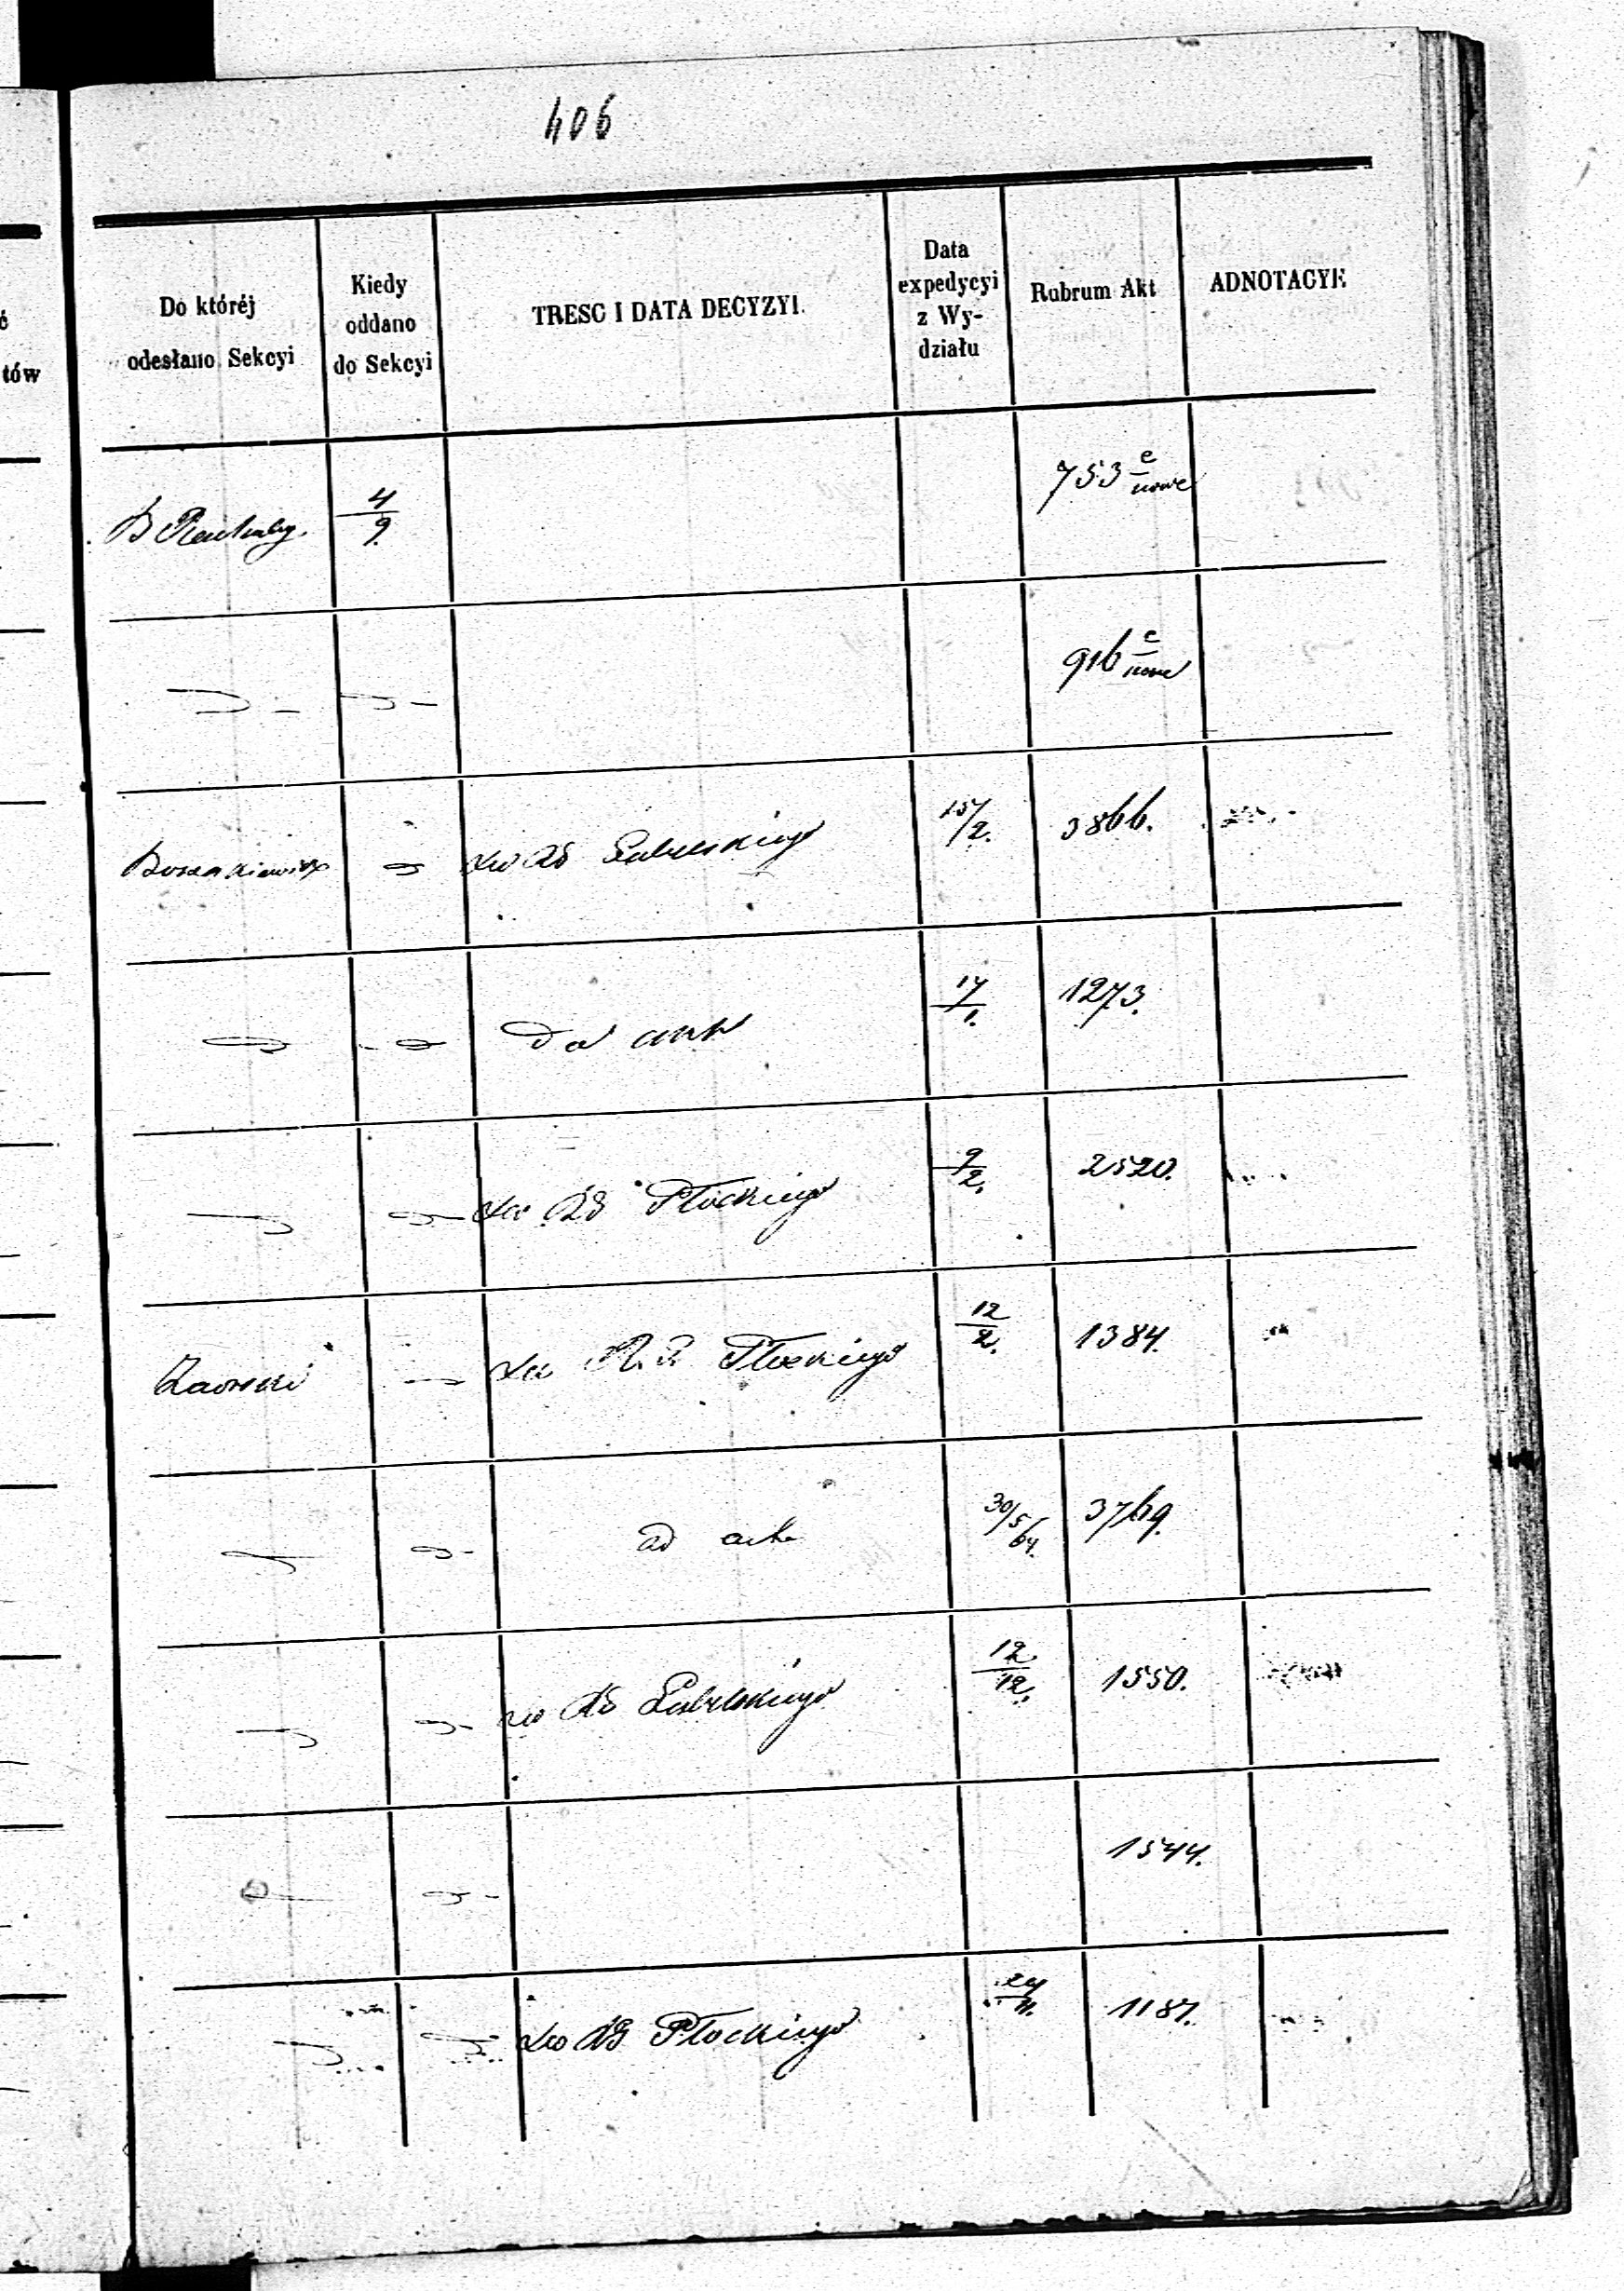 406
ć
tów
Do któréj
odesłano Sekcyi
Kiedy
oddano
do Sekcyi
TRESC I DATA DECYZYI.
Data
expedycyi
z Wy-
działu
Rubrum Akt
ADNOTACYE
B
4/9.
753 e/nowe
916 e/nowe
do RG Lubelskiego
/2.
3866.
Do akt
17/1.
1273.
do RG Płockiego
9/2.
2520.
do Płockiego
12/2.
1384.
ad acta
30/5/64.
3769.
do RG Lubelskiego
12/12.
1550.
1544.
do RG Płockiego
24/11.
1187.